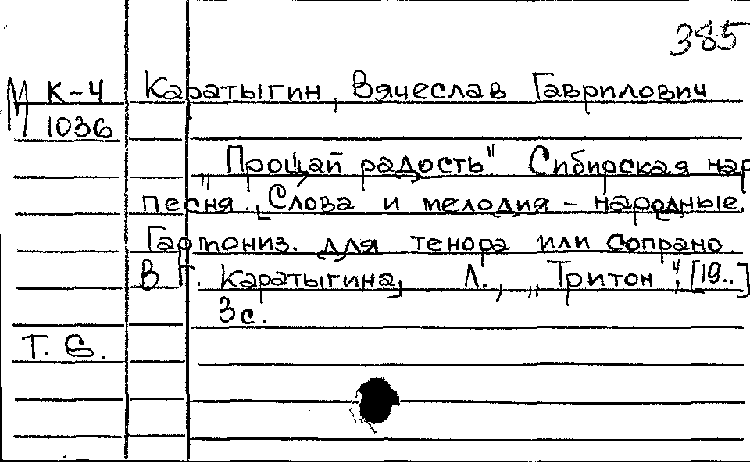 385
М К-4 Каратыгин, Вячеслав Гаврилович
1036
„Прощай радость" Сибирская нар
песня. Слова и мелодия - народные.
Гармониз. для тенора или сопрано
В Г. Каратыгина, Л., „Тритон", [19..]
3с.
Т. С.